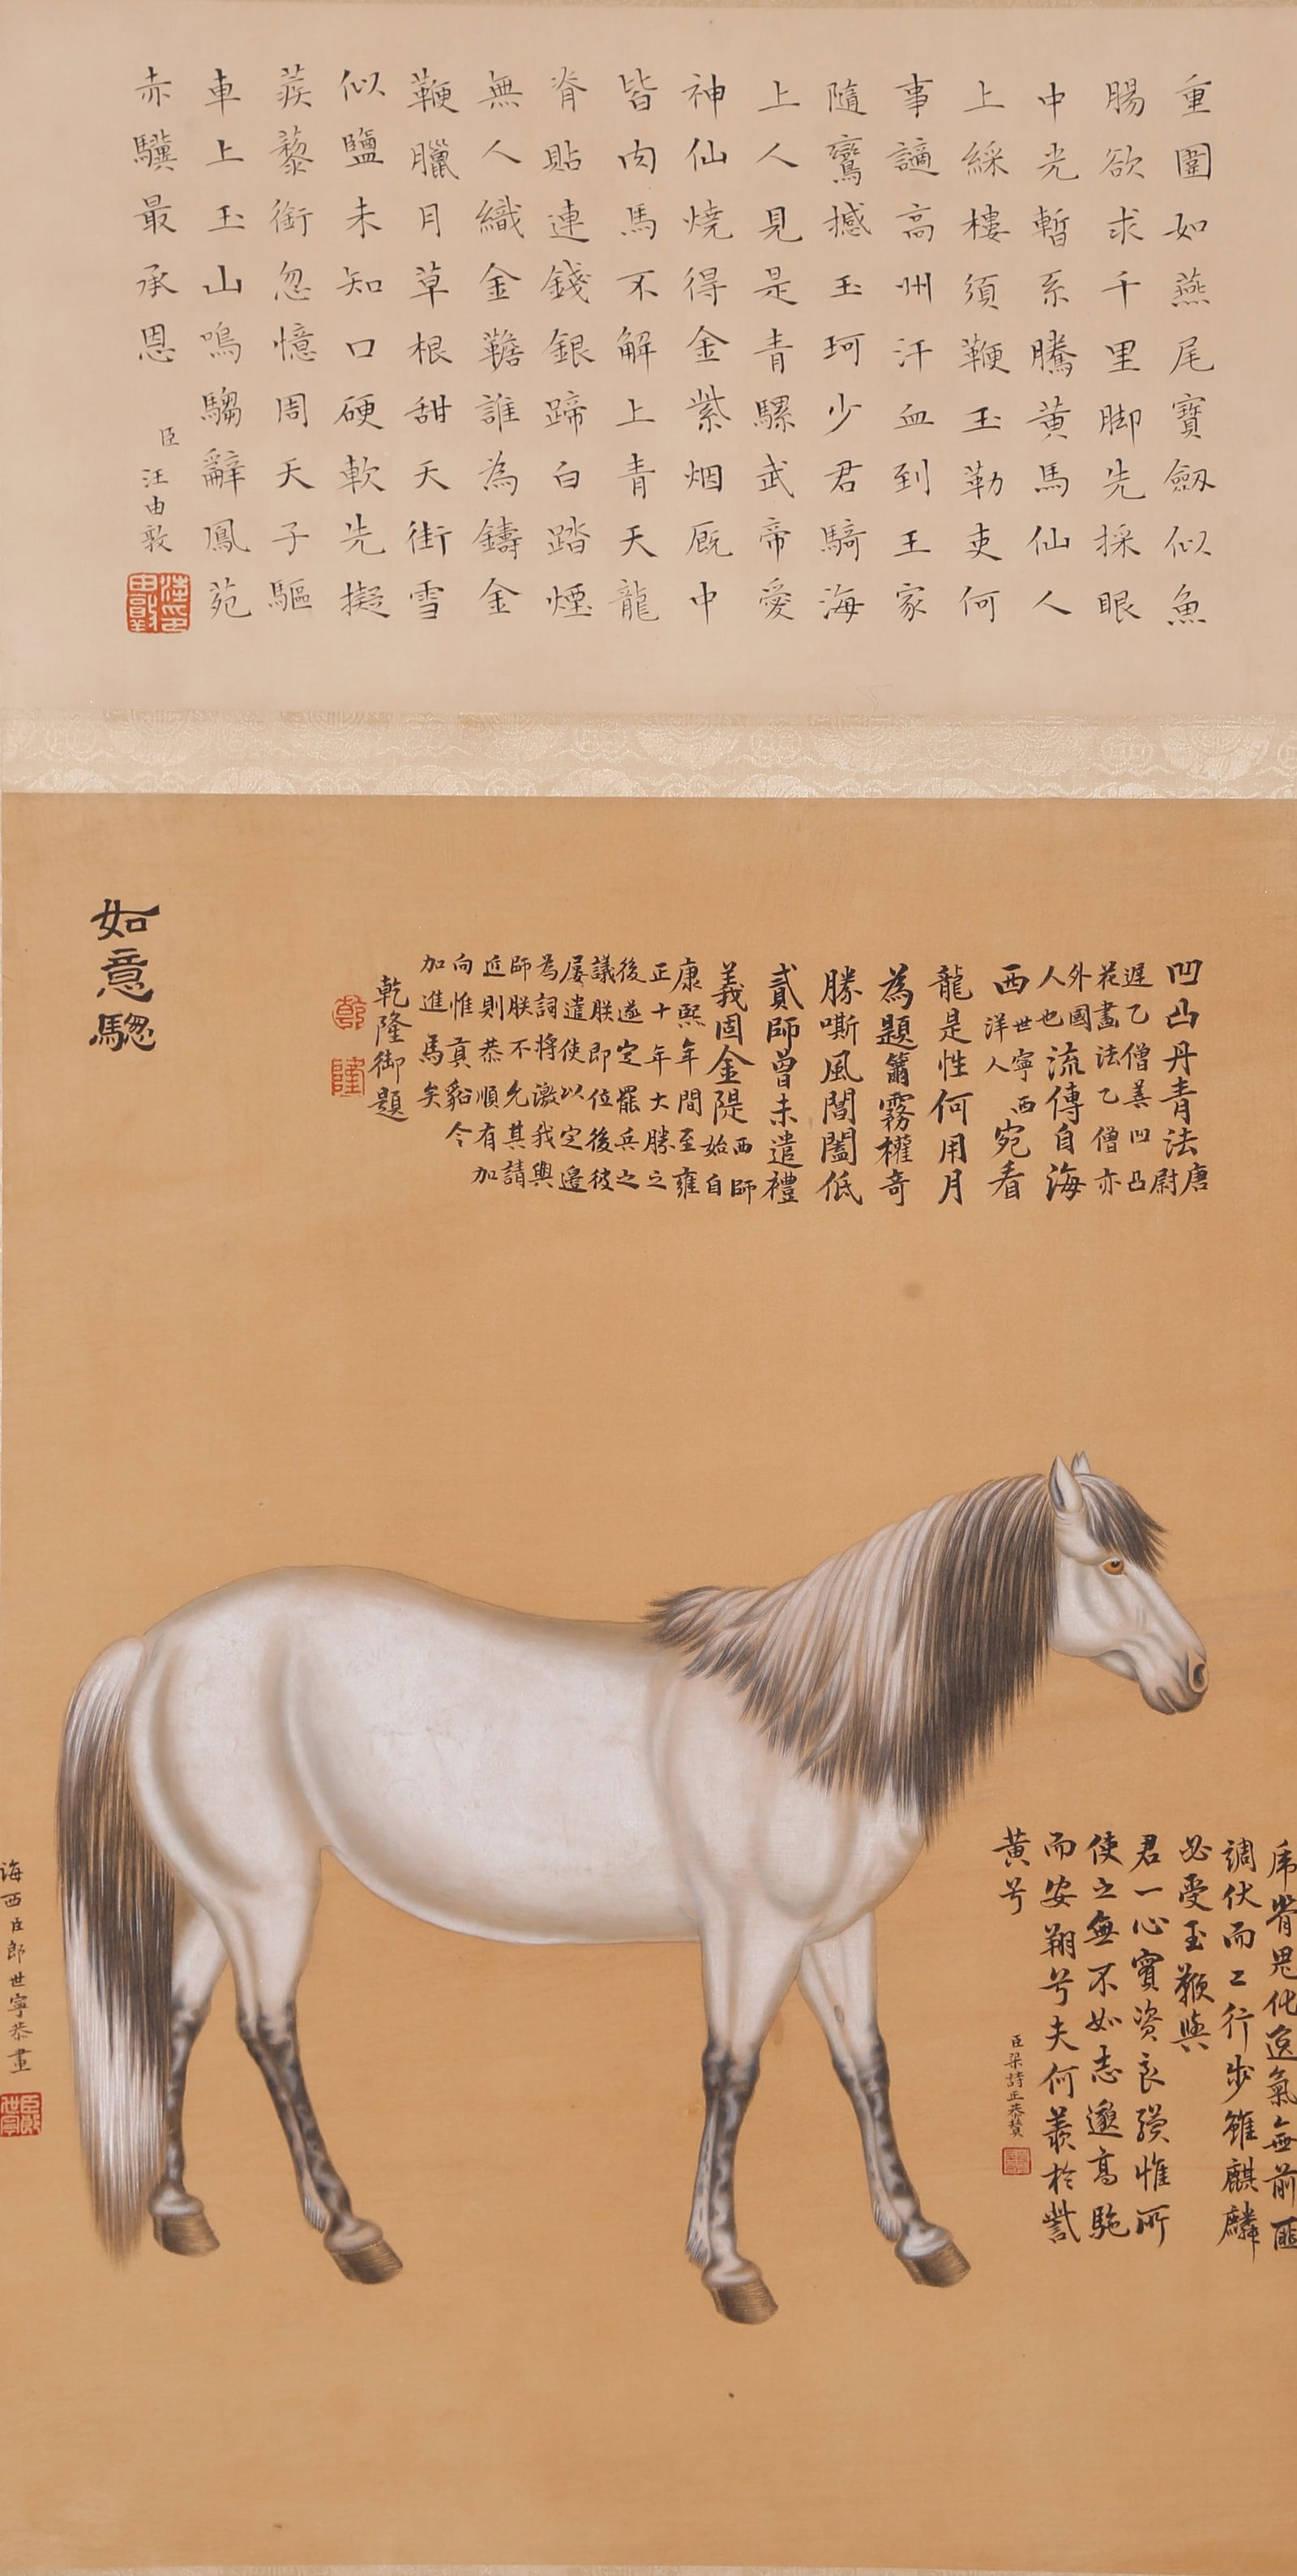 重圍如燕尾寶劔似魚
腸欲求千里脚先採眼
中光暫系騰黄馬仙人
上綵樓須鞭玉勒吏何
事謫高州汗血到王家
隨鸞撼玉珂少君騎海
上人見是青騾武帝愛
神仙燒得金紫烟厩中
皆肉馬不解上青天龍
脊貼連錢銀蹄白踏煙
無人織金韂誰為鑄金
鞭臘月草根甜天街雪
似鹽未知口硬軟先擬
蒺藜銜忽憶周天子驅
車上玉山鳴騶辭鳳苑
赤驥最承恩
臣汪由敦
如意驄
凹凸丹青法
唐尉
遲乙僧善凹凸
花畫法乙僧亦
外國
人也
流傳自海
西
世寧西
洋人
宛看
龍是性何用月
為題籋霧權奇
勝嘶風闇闔低
貳師曾未遣禮
義固金隄
西師
始自
康熙年間至雍
正十年大勝之
後遂定罷兵之
議朕即位後彼
屡遣使以定邉
為詞將激我與
師朕不允其請
近則恭順有加
向惟貢貂今
加進馬矣
乾隆御題
乾隆
虎脊鬼化逸氣無前匪
調伏而工行步雖麒麟
必受玉鞭與
君一心實資良彊惟所
使之無不如志遨高馳
而安翔兮夫何羨於紫
黄兮
臣梁詩正恭贊
海西臣郎世寧恭畫
臣郎世寧